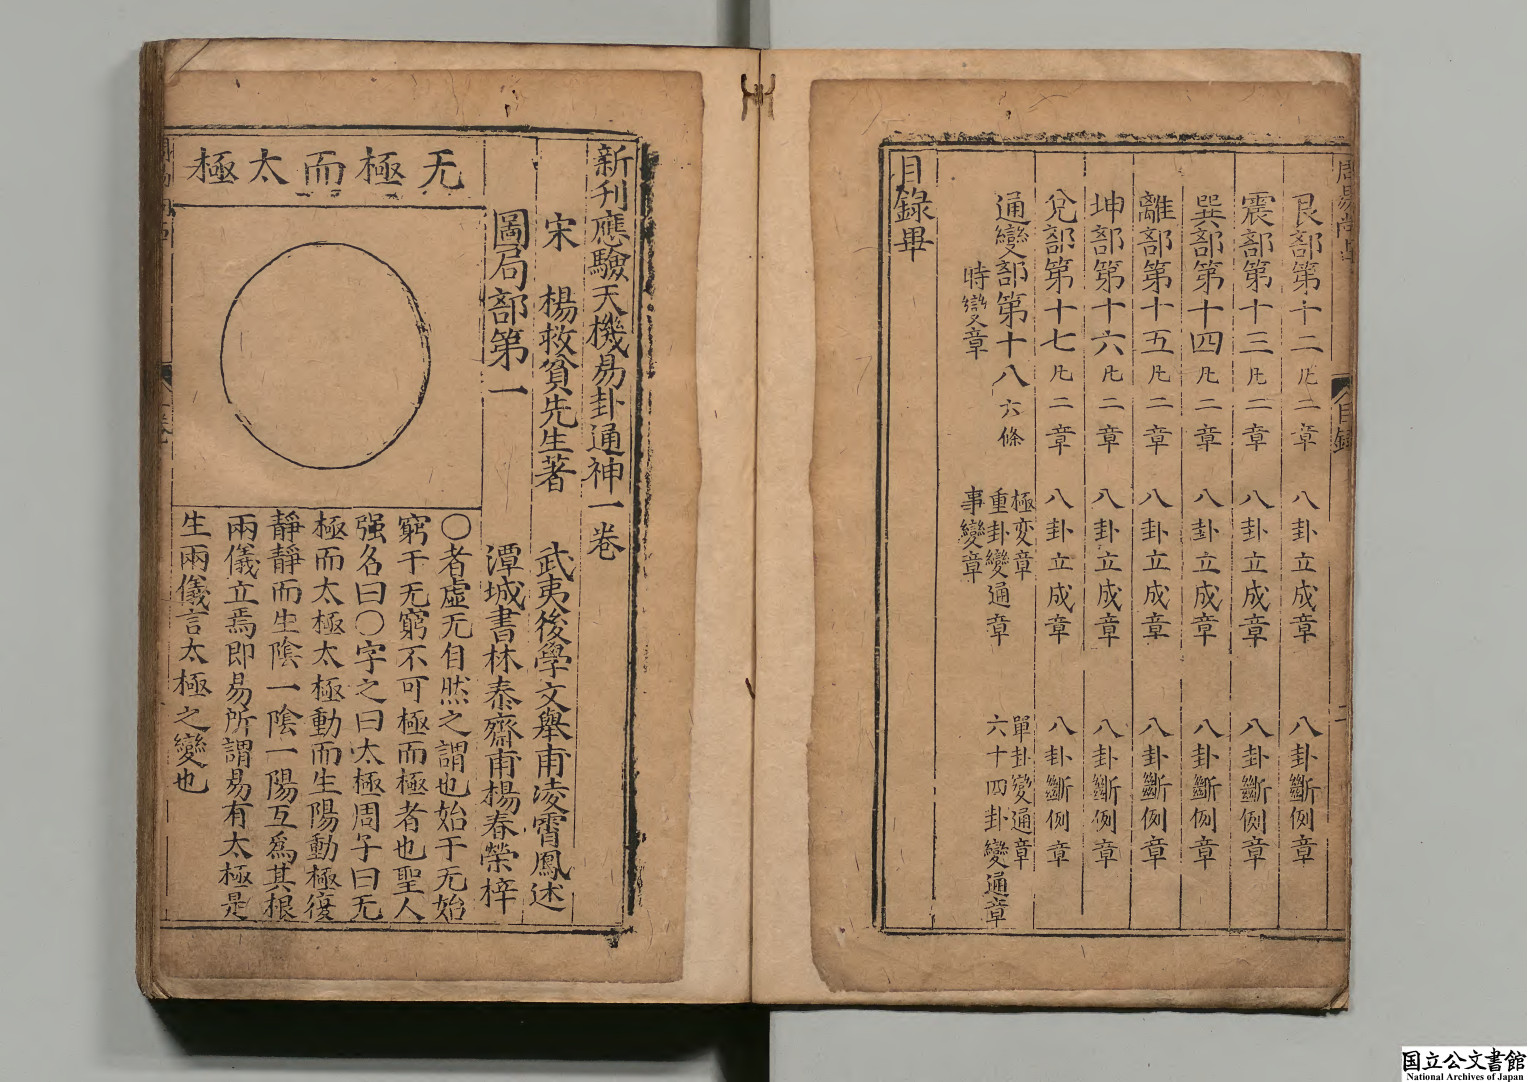 艮部第十二 凢二章 八卦立成章 八卦斷例章
震部第十三 凢二章 八卦立成章 八卦斷例章
巽部第十四 凢二章 八卦立成章 八卦斷例章
離部第十五 凢二章 八卦立成章 八卦斷例章
坤部第十六 凢二章 八卦立成章 八卦斷例章
兌部第十七 凢二章 八卦立成章 八卦斷例章
通變部第十八 六條 極变章 單卦變通章
重卦變通章 六十四卦變通章
時變章 事變章
目錄畢
目錄
二
新刊應驗天機易卦通神一卷
宋 楊救貧先生著 武夷後學文舉甫凌霄鳳述
圖局部第一 潭城書林泰齋甫楊春榮梓
无極而太極
〇者虛无自然之謂也始于无始
窮于无窮不可極而極者也聖人
强名曰〇字之曰太極周子曰无
極而太極太極動而生陽動極復
靜靜而生陰一陰一陽互爲其根
兩儀立焉即易所謂易有太極是
生兩儀言太極之變也
国立公文書館
National Archives of Japan